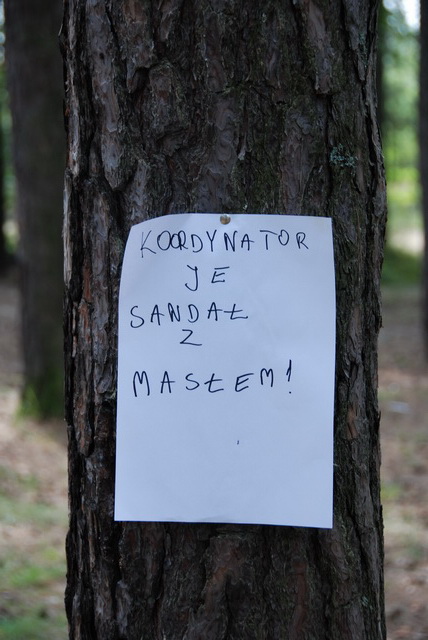 KOORDYNATOR
JE
SANDAŁ
Z
MASŁEM!